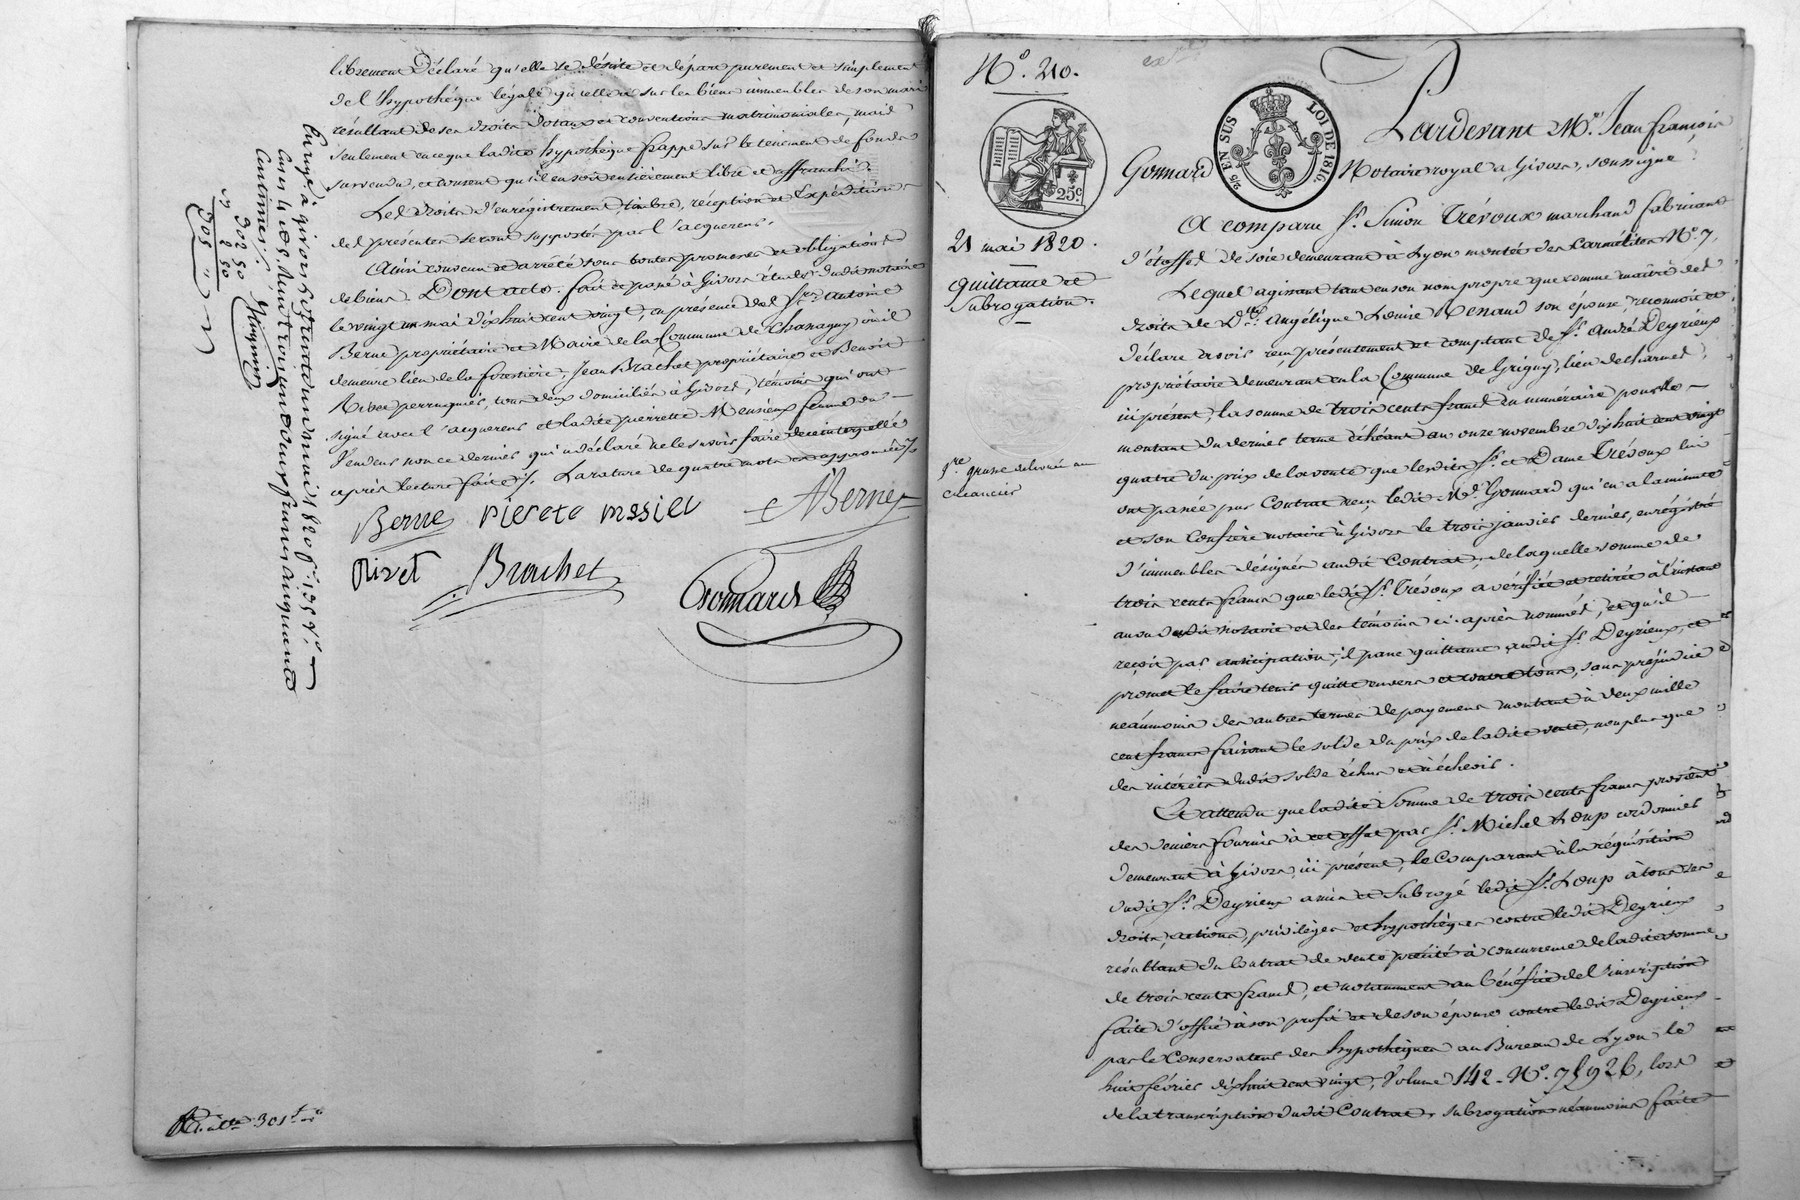 librement Déclaré qu'elle se désiste et départ purement et simplement
de l'hypothéque légale qu'elle a sur les biens immeubles de son mari
résultant de ses droits Dotaux et conventions matrimoniales, mais
seulement en ce que ladite hypothéque frappe sur le tenement de fonds
survendu, et consent qu'il en soit entiérement libre et affranchi.
Les droits d'enrégistrement, timbre, réception et Expédition
des présentes seront supportés par l'acquereur.
Ainsi convenu et arrêté sous toutes promesses et obligations
de biens. Dont acte. fait et passé à Givors étude dudit notaire
le vingt un mai dix huit cent vingt, en présence des Srs. antoine
Berne propriétaire et Maire de la Commune de Chassagny où il
demeure lieu de la forestière, Jean Brachet propriétaire et Benoit
Rivet perruquier, tous deux domiciliés à Givors, témoins qui ont
signé avec l'acquereur et ladite pierrette Mensieux femme du
Vendeur non ce dernier qui a déclaré ne le savoir faire de ce interpellé
après lecture faite. La rature de quatre mots est approuvée
Berne pierete mesieu ABerne
Rivet Brachet
Gonnard
Enrgé. à givors le trente un mai 1820 fo. 135 Vo.
Cases 4 et 5. Reçu trois cent deux francs cinquante
centimes.
302 50
2 50
305 "
Rt. alte 301
No. 210.
25c.
25 EN SUS LOI DE 1816.
21 mai 1820.
Quittance et
Subrogation.
1re. grosse délivrée au
créancier
Pardevant Me. Jean françois
Gonnard Notaire royal à Givors, soussigné
A comparu Sr. Simon Trévoux marchand fabricant
d'étoffes de soie demeurant à Lyon montée des Carmélites No. 7,
Lequel agissant tant en son nom propre que comme maître des
droits de De. Angélique Louise Renaud son épouse, reconnoit et
déclare avoir reçu présentement et comptant de Sr. André Deyrieux
propriétaire demeurant en la Commune de Grigny, lieu des charmes,
ici présent, la somme de trois cents francs en numéraire pour le
montant du dernier terme échéant au onze novembre dix huit cent vingt
quatre du prix de la vente que lesdits Sr. et Dame Trévoux lui
ont passée par Contrat reçu ledit Me. Gonnard qui en a la minute
et son Confrère notaire à Givors le trois janvier dernier, enrégistré
d'immeubles désignés audit Contrat; de laquelle somme de
trois cents francs que ledit Sr. Trévoux a vérifiée et retirée à l'instant
au vu dudit notaire et des témoins ci-après nommés, et qu'il
reçoit par anticipation, il passe quittance audit Sr. Deyrieux, et
promet le faire tenir quitte envers et contre tous, sans préjudice
néanmoins des autres termes de payement montant à deux mille
cent francs faisant le solde du prix de ladite vente, non plus que
des intérêts dudit solde échus et à échoir.
Et attendu que ladite Somme de trois cents francs provient
des deniers fournis à cet effet par Sr. Michel Loup cordonnier
demeurant à Givors, ici présent, le Comparant à la réquisition
dudit Sr. Deyrieux a mis et subrogé ledit Sr. Loup à tous ses
droits, actions, privilèges et hypothèques contre ledit Deyrieux
résultant du Contrat de vente précité à concurrence de ladite somme
de trois cents francs, et notamment au bénéfice de l'inscription
faite d'office à son profit et de son épouse contre ledit Deyrieux
par le Conservateur des hypothèques au Bureau de Lyon le
huit février dix huit cent vingt, Volume 142 - No. 75926, lors
de la transcription dudit Contrat, subrogation néanmoins faite